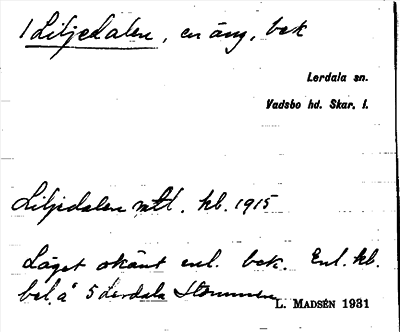 1 Liljedalen, en äng, bek
Lerdala sn.
Vadsbo hd. Skar. l.
Liljedalen mtl. kb. 1915
Läget okänt enl. bek. Enl. kb.
bel. å 5 Lerdala Stommen
L. MADSÉN 1931